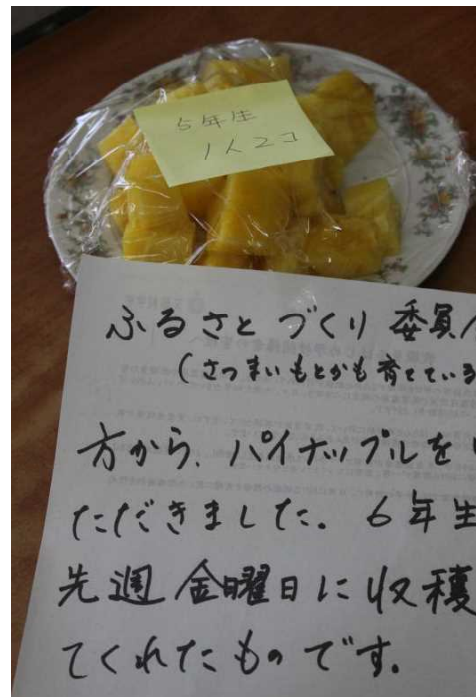 5年生
1人2コ
ふるさとづくり委員
(さつまいもとかも育てている
方から、パイナップルを
ただきました。6年生
先週金曜日に収穫
てくれたものです。